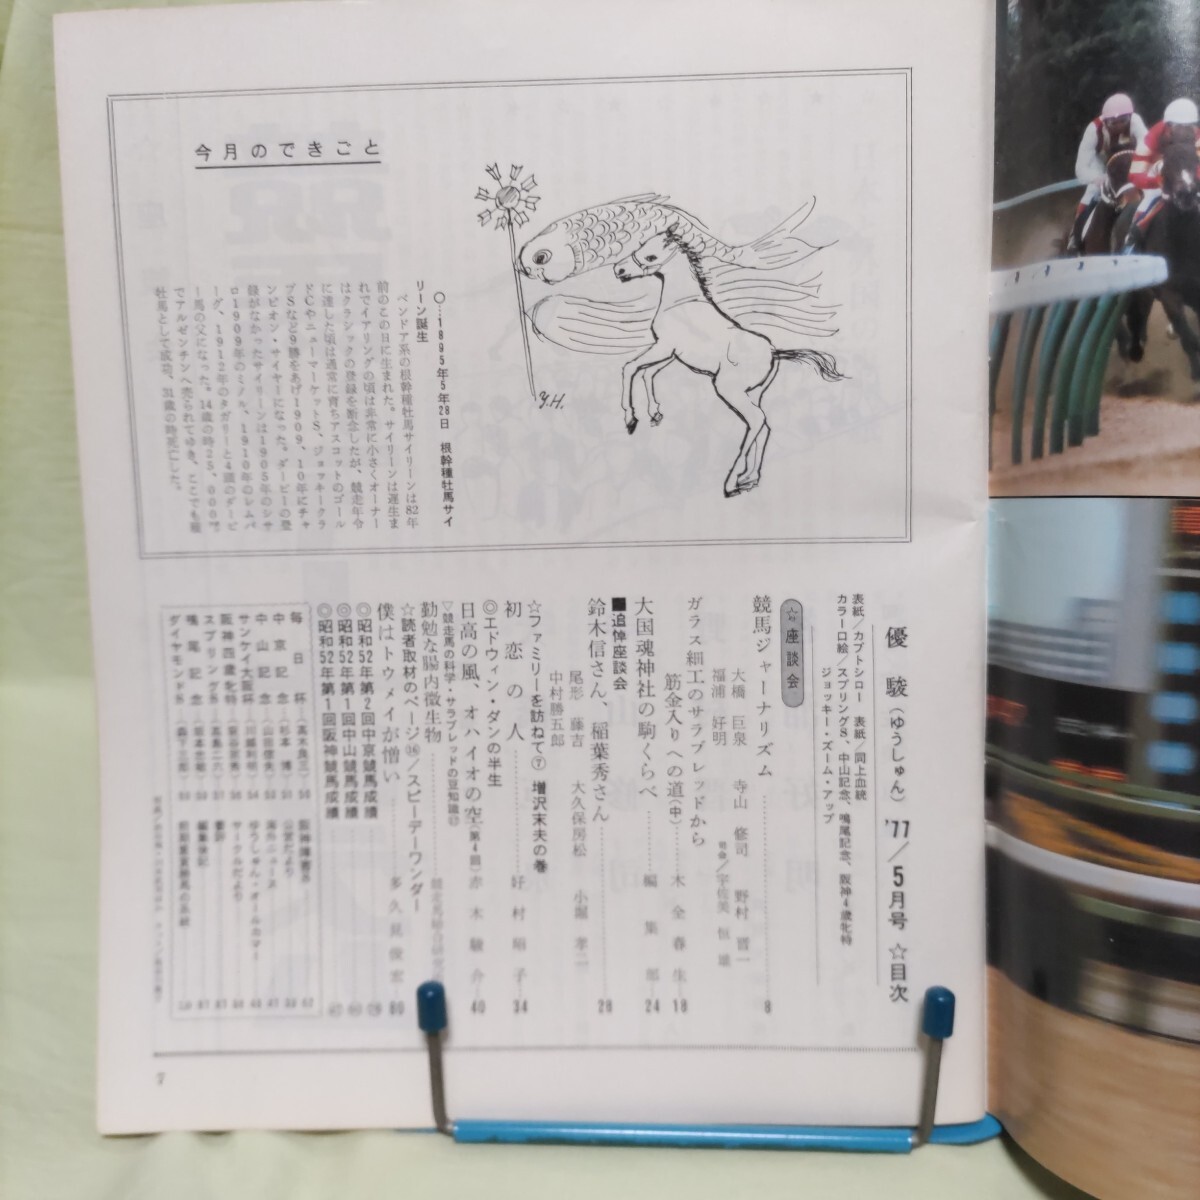 今月のできごと
〇…1895年5年28日　根幹種牡馬サイ
リーン誕生
ベンドア系の根幹種牡馬サイリーンは82年
前のこの日に生まれた。サイリーンは遅生ま
れでイアリングの頃は非常に小さくオーナー
はクラシックの登録を断念したが、競走年令
に達した頃は通常に育ちアスコットのゴール
ドCやニューマーケットS、ジョッキークラ
ブSなど9勝をあげ1909、10年にチャ
ンピオン・サイヤーになった。ダービーの登
録がなかったサイリーンは1905年のシサ
ロ1909年のミノル、1910年のレムバ
ーグ、1912年のタガリーと4頭のダービ
ー馬の父になった。14歳の時25、000
でアルゼンチンへ売られてゆき、ここでも種
牡馬として成功、31歳の時死亡した。
y.H.
優駿（ゆうしゅん）'77/5月号☆目次
表紙／カブトシロー　表紙／同上血統
カラー口絵／スプリングS、中山記念、鳴尾記念、阪神4歳牝特
ジョッキー・ズーム・アップ
☆座談会
競馬ジャーナリズム……8
大橋巨泉　寺山修司　野村晋一
福浦好明　司会／宇佐美恒雄
ガラス細工のサラブレッドから
筋金入りへの道（中）……木全春生　18
大国魂神社の駒くらべ……編集部　24
■追悼座談会
鈴木信さん、稲葉秀さん……28
尾形藤吉　大久保房松　小堀孝二
中村勝五郎
☆ファミリーを訪ねて⑦　増沢末夫の巻
初恋の人……好村昭子　34
◎エドウィン・ダンの半生
日高の風、オハイオの空（第4回）……赤木駿介　40
▽競走馬の科学・サラブレッドの豆知識
勤勉な腸内微生物……
☆読者取材のページ／スピーデーワンダー
僕はトウメイが憎い……多久見俊宏　60
◎昭和52年第2回中京競馬成績
◎昭和52年第1回中山競馬成績
◎昭和52年第1回阪神競馬成績
毎日杯
中京記念
中山記念
サンケイ大阪杯
阪神四歳牝特
スプリングS
鳴尾記念
ダイヤモンドS
海外ニュース
ゆうしゅん・オールカマー
サークルだより
編集後記
7